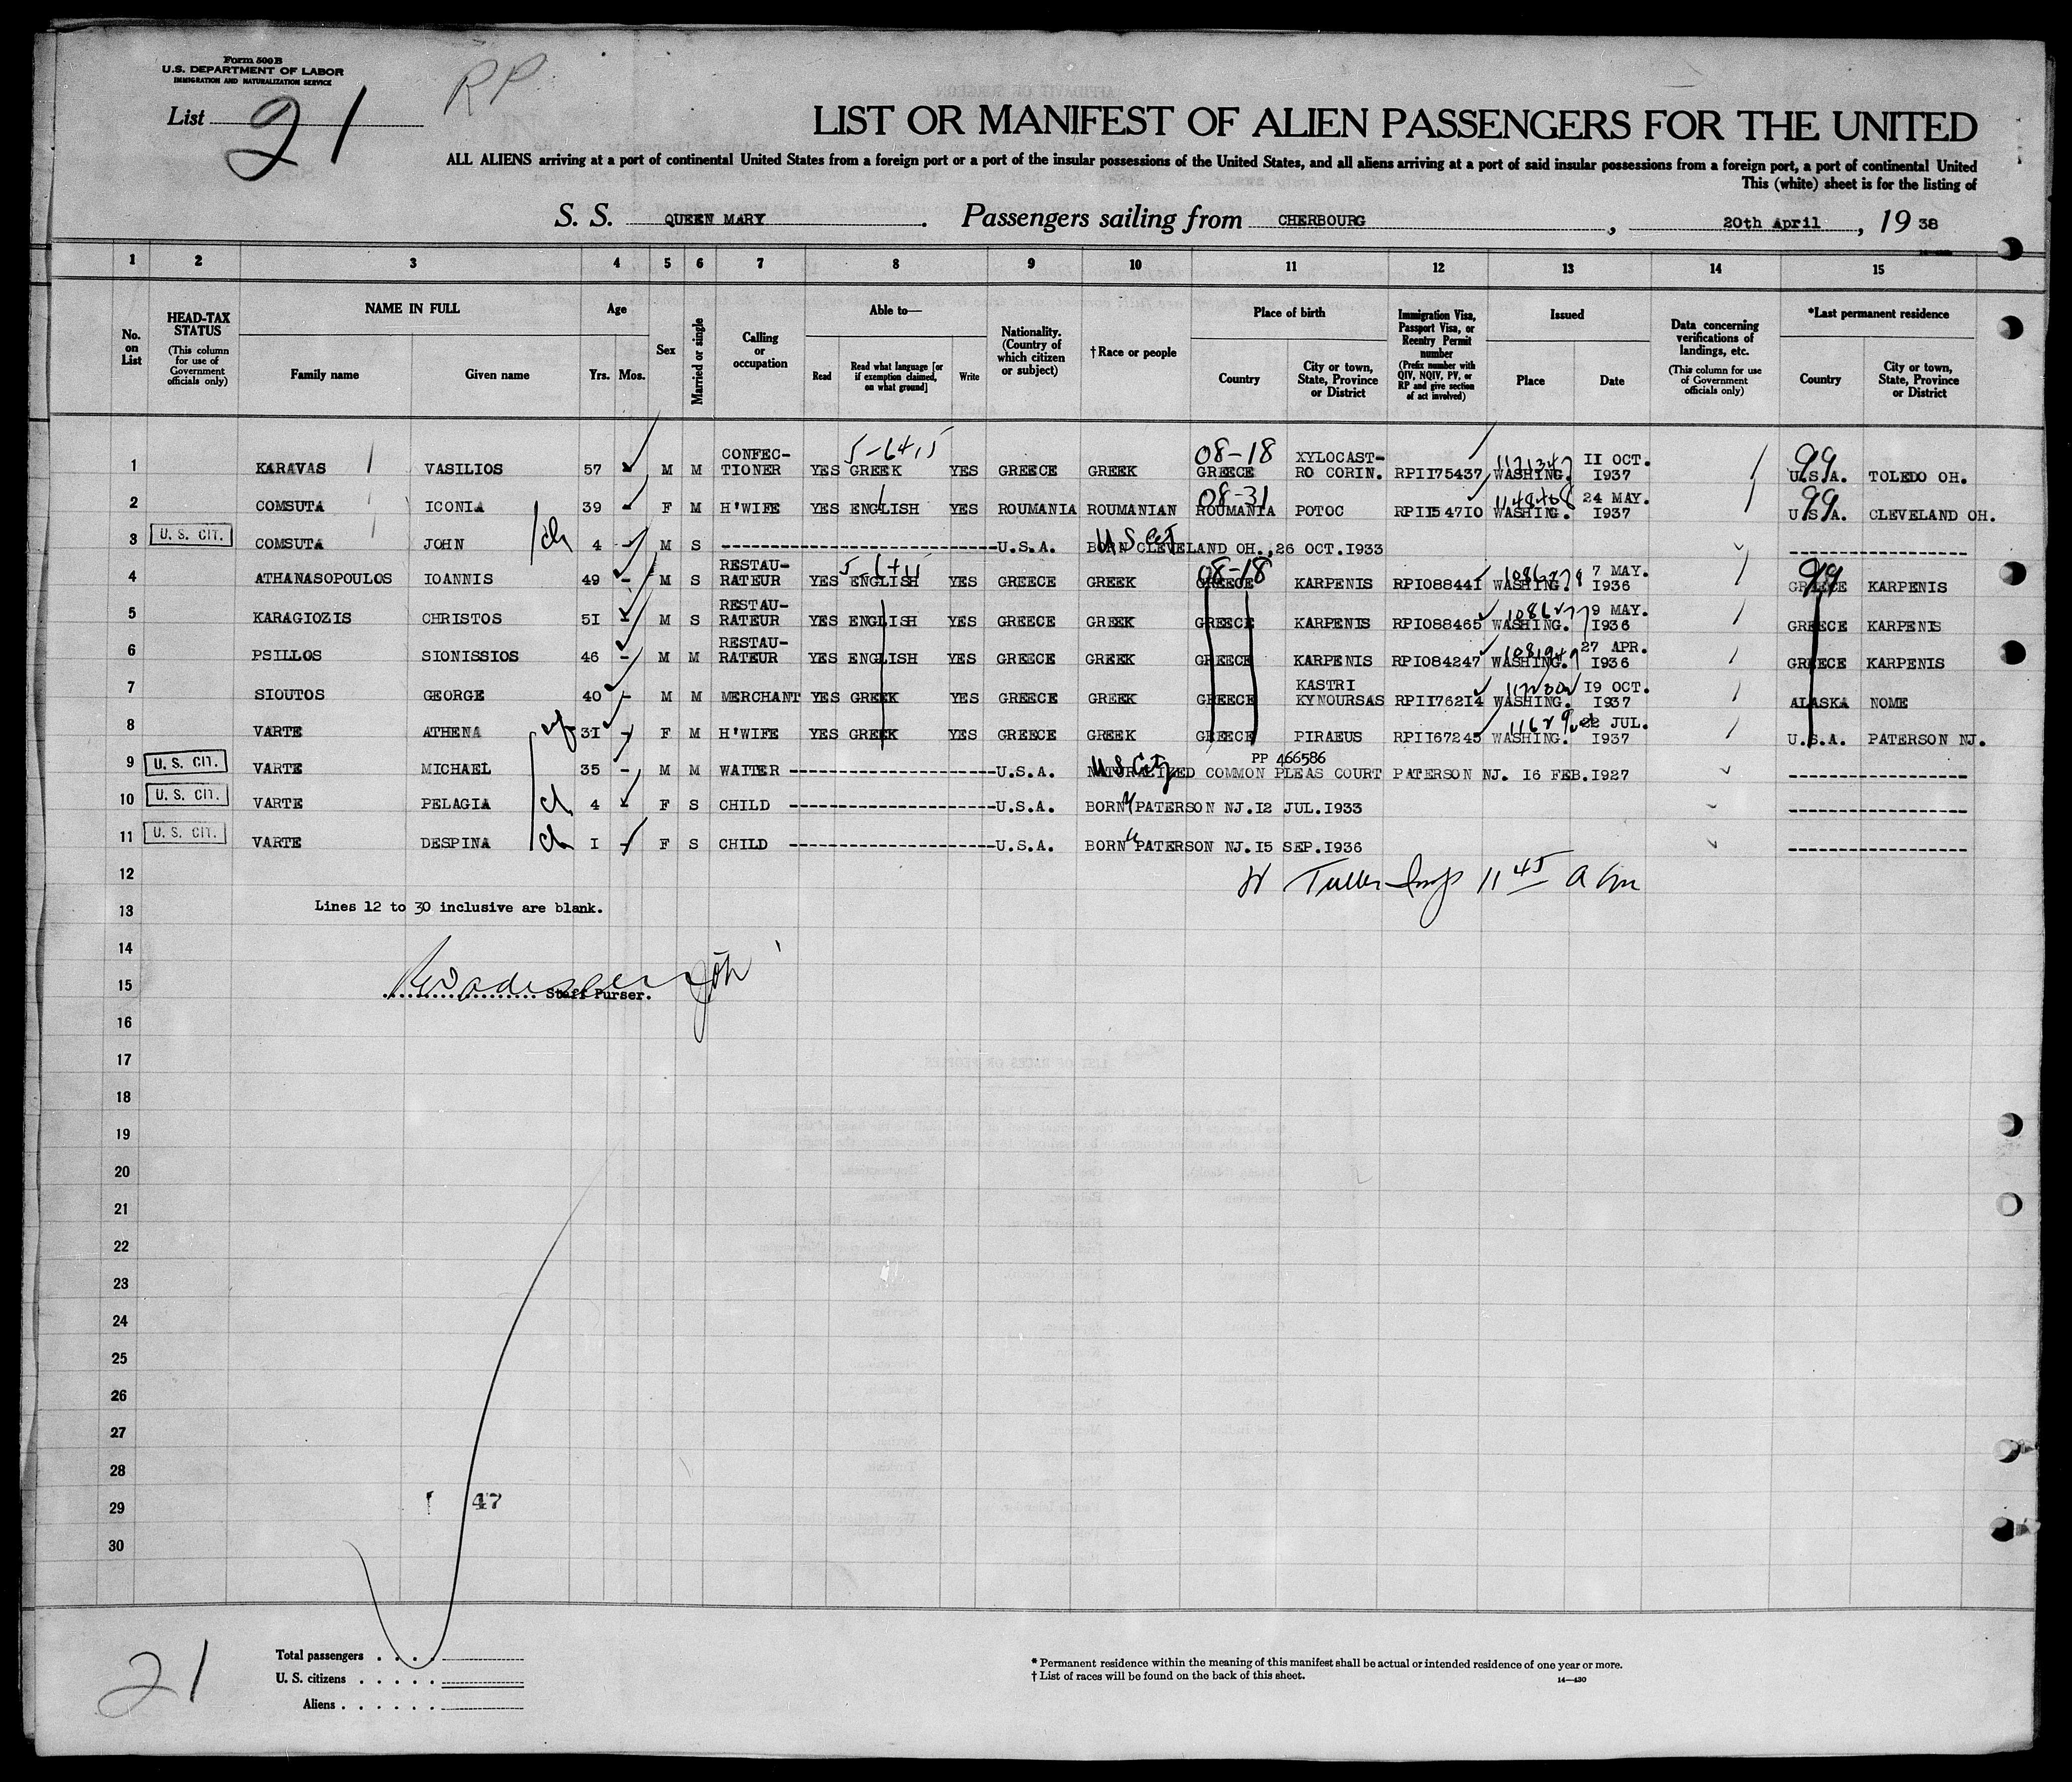 Form 500B
U.S. DEPARTMENT OF LABOR
IMMIGRATION AND NATURALIZATION SERVICE
List 21
RP
LIST OR MANIFEST OF ALIEN PASSENGERS FOR THE UNITED
ALL ALIENS arriving at a port of continental United States from a foreign port or a port of the insular possessions of the United States, and all aliens arriving at a port of said insular possessions from a foreign port, a port of continental United
This (white) sheet is for the listing of
S. S. QUEEN MARY. Passengers sailing from CHERBOURG, 20th April, 19 38
1 2 3 4 5 6 7 8 9 10 11 12 13 14 15
No. on List
HEAD-TAX STATUS (This column for use of Government officials only)
NAME IN FULL
Family name Given name
Age
Yrs. Mos.
Sex
Married or single
Calling or occupation
Able to—
Read Read what language [or if exemption claimed, on what ground] Write
Nationality. (Country of which citizen or subject)
†Race or people
Place of birth
Country City or town, State, Province or District
Immigration Visa, Passport Visa, or Reentry Permit number (Prefix number with QIV, NQIV, PV, or RP and give section of act involved)
Issued
Place Date
Data concerning verifications of landings, etc. (This column for use of Government officials only)
*Last permanent residence
Country City or town, State, Province or District
1 KARAVAS VASILIOS 57 M M CONFEC-TIONER YES GREEK YES GREECE GREEK 08-18 GREECE XYLOCAST-RO CORIN. RPII75437 WASHING. II OCT. I937 99 U.S.A. TOLEDO OH.
2 COMSUTA ICONIA 39 F M H'WIFE YES ENGLISH YES ROUMANIA ROUMANIAN 08-31 ROUMANIA POTOC RPII54710 WASHING. 24 MAY. I937 99 U.S.A. CLEVELAND OH.
3 U. S. CIT. COMSUTA JOHN ch 4 M S U.S.A. BORN CLEVELAND OH.,26 OCT.I933
4 ATHANASOPOULOS IOANNIS 49 - M S RESTAU-RATEUR YES ENGLISH YES GREECE GREEK 08-18 GREECE KARPENIS RPI088441 WASHING. 7 MAY. I936 99 GREECE KARPENIS
5 KARAGIOZIS CHRISTOS 5I M S RESTAU-RATEUR YES ENGLISH YES GREECE GREEK GREECE KARPENIS RPI088465 WASHING. 9 MAY. I936 GREECE KARPENIS
6 PSILLOS SIONISSIOS 46 - M M RESTAU-RATEUR YES ENGLISH YES GREECE GREEK GREECE KARPENIS RPI084247 WASHING. 27 APR. I936 GREECE KARPENIS
7 SIOUTOS GEORGE 40 - M M MERCHANT YES GREEK YES GREECE GREEK GREECE KASTRI KYNOURSAS RPII76214 WASHING. I9 OCT. I937 ALASKA NOME
8 VARTE ATHENA wf 3I - F M H'WIFE YES GREEK YES GREECE GREEK GREECE PIRAEUS RPII67245 WASHING. 22 JUL. I937 U.S.A. PATERSON NJ.
PP 466586
9 U. S. CIT. VARTE MICHAEL 35 - M M WAITER U.S.A. NATURALIZED COMMON PLEAS COURT PATERSON NJ. I6 FEB.I927
10 U. S. CIT. VARTE PELAGIA ch 4 F S CHILD U.S.A. BORN PATERSON NJ.I2 JUL.I933
11 U. S. CIT. VARTE DESPINA ch I - F S CHILD U.S.A. BORN PATERSON NJ.I5 SEP.I936
12 11 45 a
13 Lines 12 to 30 inclusive are blank.
14
15 Staff Purser.
16
17
18
19
20
21
22
23
24
25
26
27
28
29 47
30
21
Total passengers
U. S. citizens
Aliens
* Permanent residence within the meaning of this manifest shall be actual or intended residence of one year or more.
† List of races will be found on the back of this sheet.
14—430